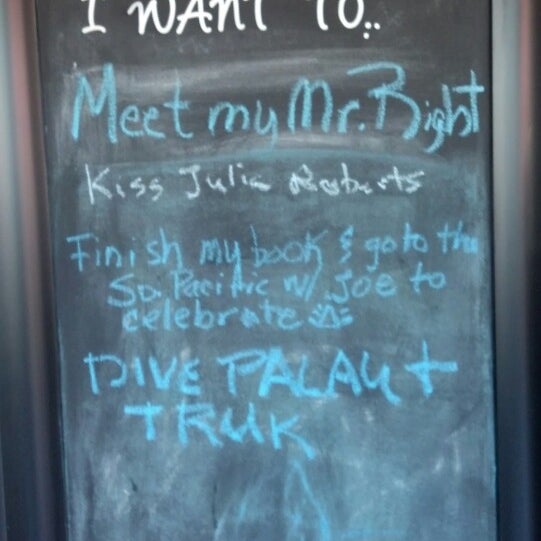 I WANT TO..
Meet my Mr. Right
Kiss Julia Roberts
Finish my book & go to the
So. Pacific w/ Joe to
celebrate
DIVE PALAU +
TRUK